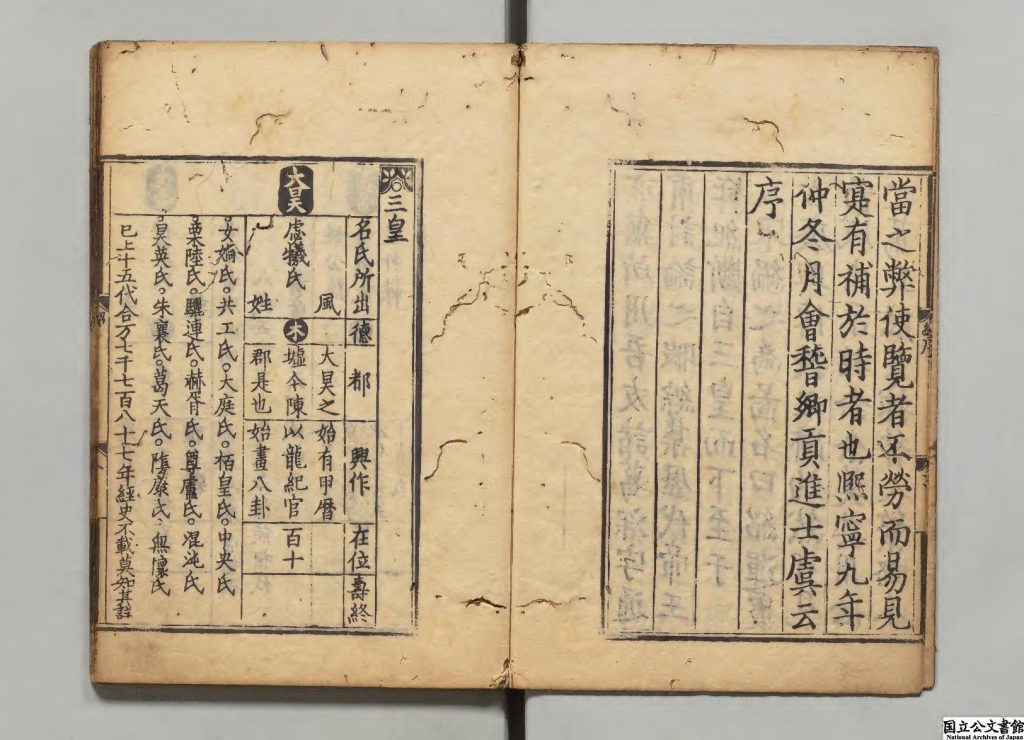 當之弊使覽者不勞而易見
寔有補於時者也熙寧九年
仲冬月會稽鄉貢進士虞云
序
三皇
名氏所出 德 都 興作 在位 壽終
大昊
風 大昊之 始有甲曆
虙犧氏 木 墟今陳 以龍紀官 百十
姓 郡是也 始畫八卦
女媧氏。共工氏。大庭氏。栢皇氏。中央氏
栗陸氏。驪連氏。赫胥氏。尊盧氏。混沌氏
昊英氏。朱襄氏。葛天氏。陰康氏。無懷氏
已上十五代合万七千七百八十七年經史不載莫知其詳
国立公文書館
National Archives of Japan